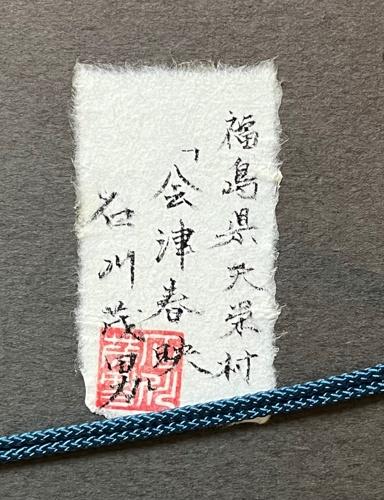 福島県天栄村
「会津春映
石川茂男